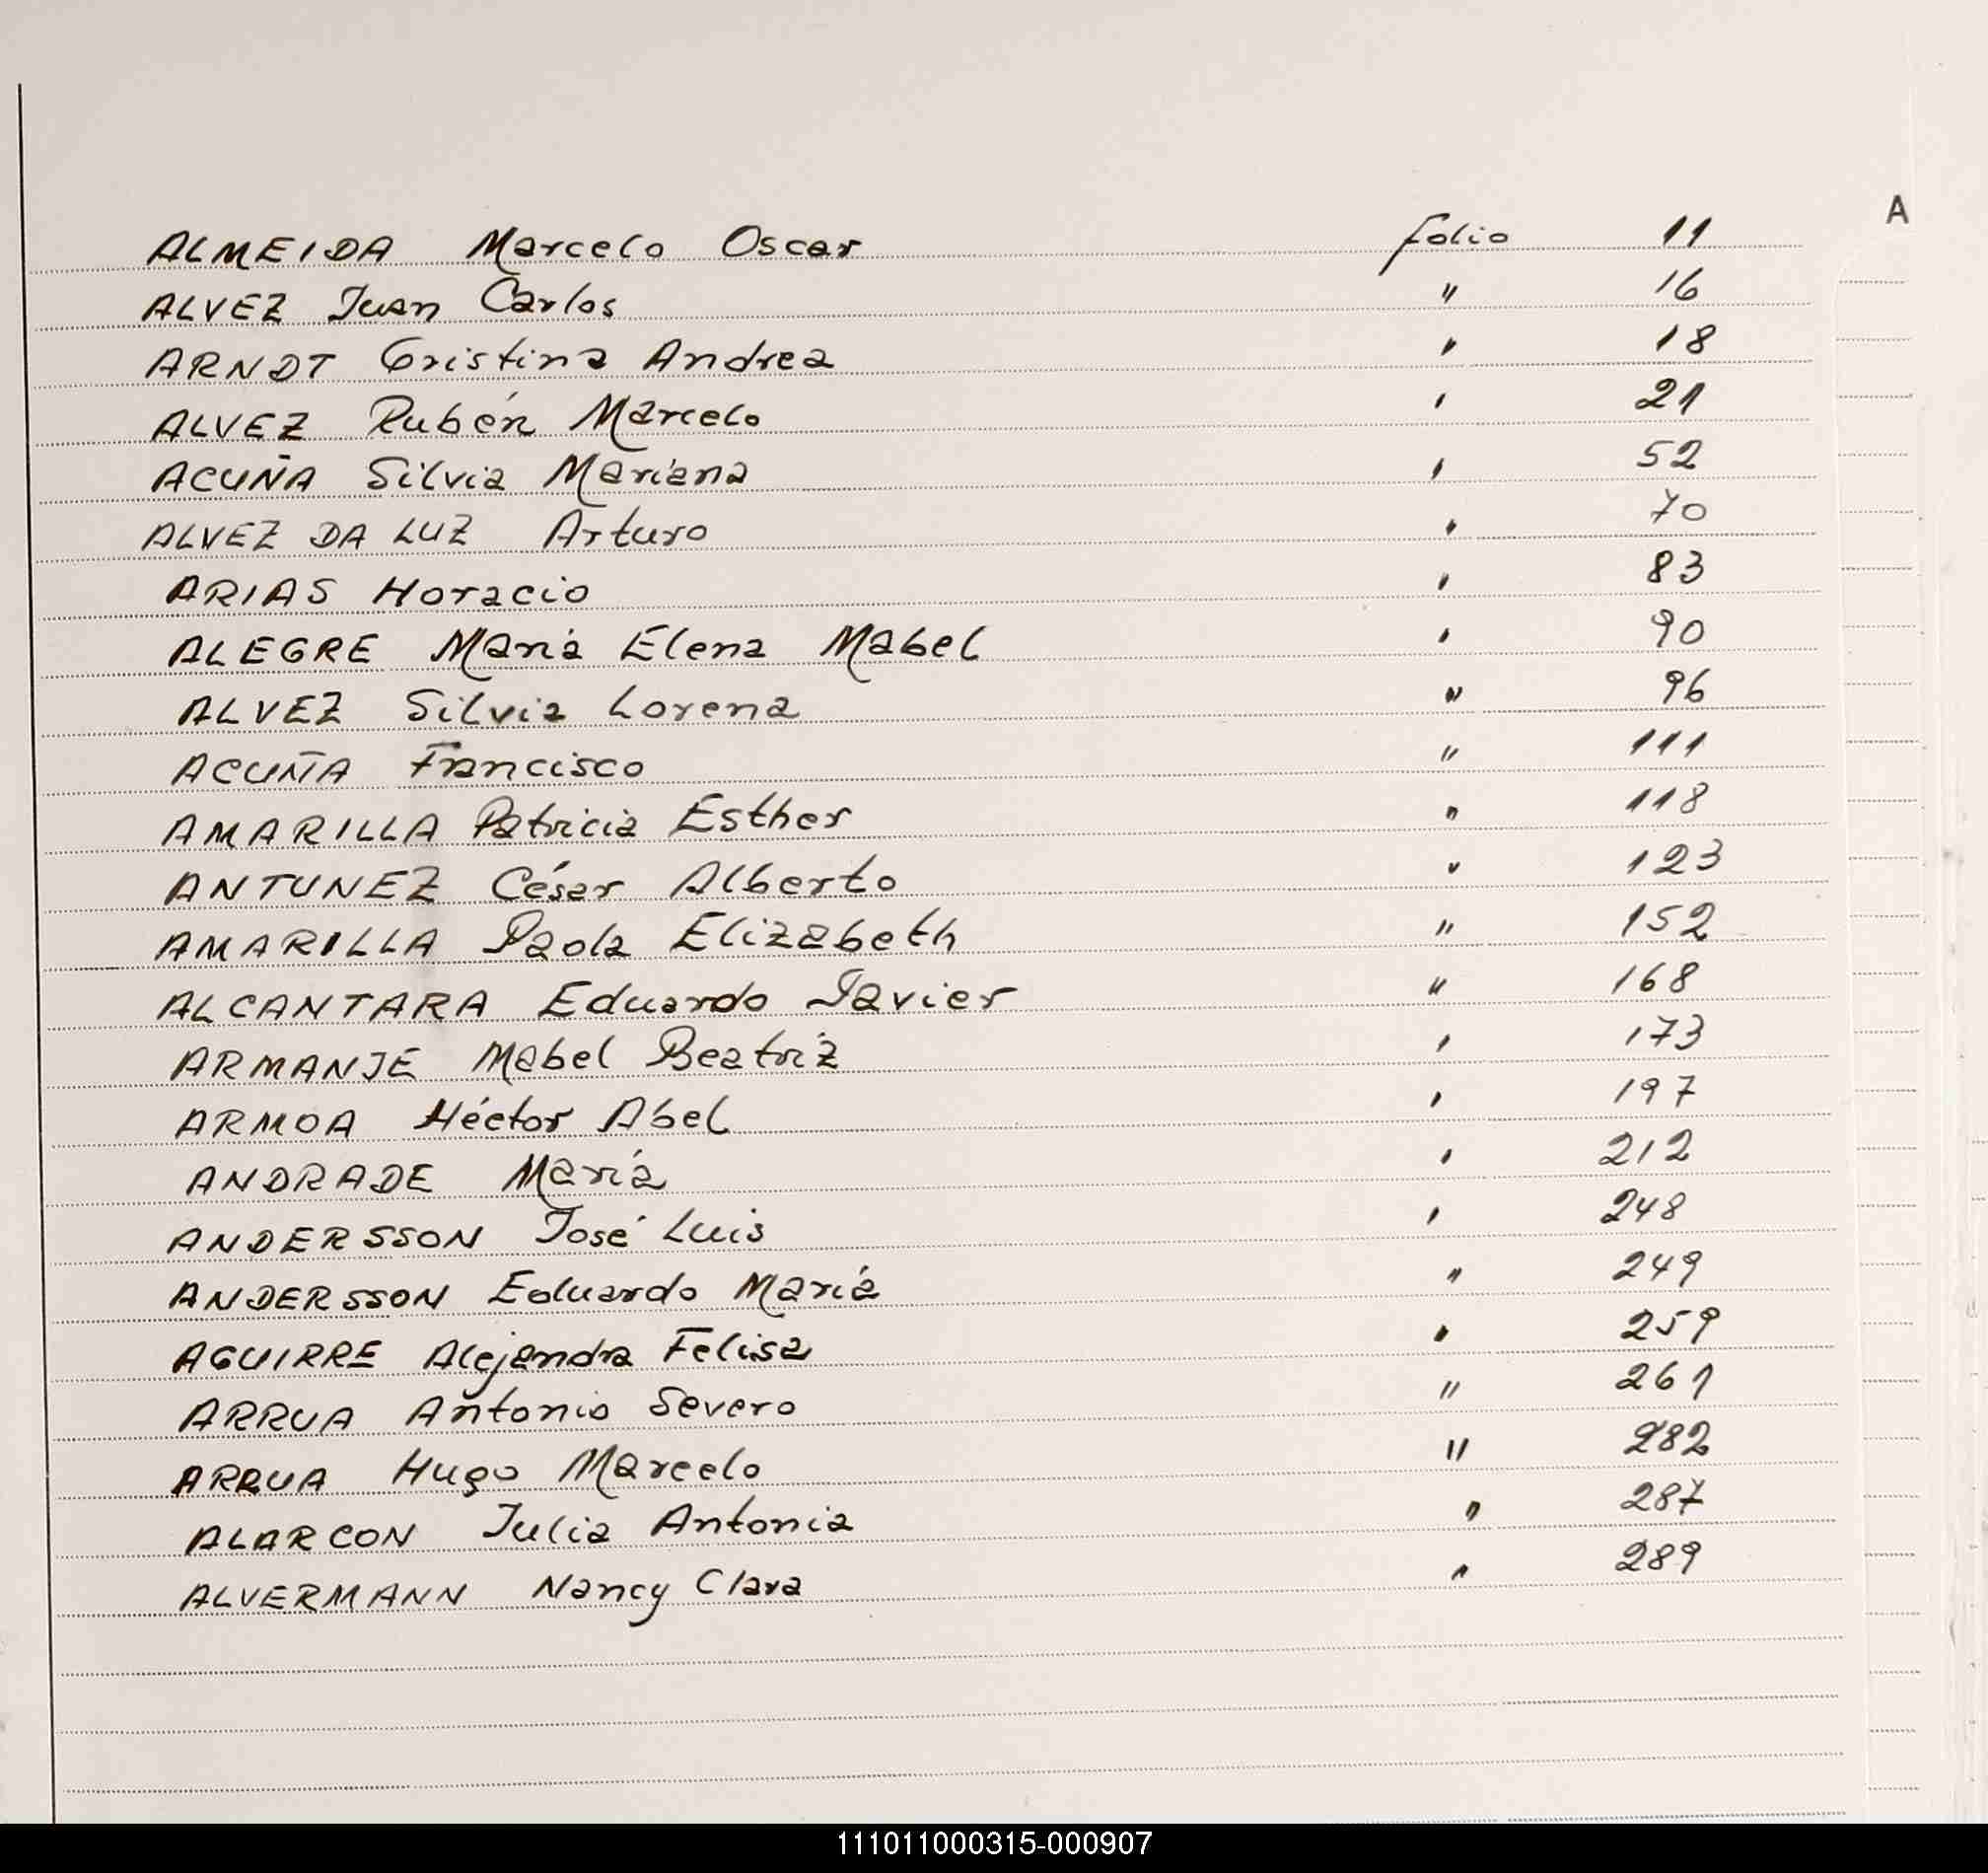 A
ALMEIDA Marcelo Oscar folio 11
ALVEZ Juan Carlos " 16
ARNDT Cristina Andrea " 18
ALVEZ Rubén Marcelo " 21
ACUÑA Silvia Mariana " 52
ALVEZ DA LUZ Arturo " 70
ARIAS Horacio " 83
ALEGRE María Elena Mabel " 90
ALVEZ Silvia Lorena " 96
ACUÑA Francisco " 111
AMARILLA Patricia Esther " 118
ANTUNEZ César Alberto " 123
AMARILLA Paola Elizabeth " 152
ALCANTARA Eduardo Javier " 168
ARMANJE Mabel Beatriz " 173
ARMOA Héctor Abel " 197
ANDRADE María " 212
ANDERSSON José Luis " 248
ANDERSSON Eduardo María " 249
AGUIRRE Alejandra Felisa " 259
ARRUA Antonio Severo " 261
ARRUA Hugo Marcelo " 282
ALARCON Julia Antonia " 287
ALVERMANN Nancy Clara " 289
111011000315-000907